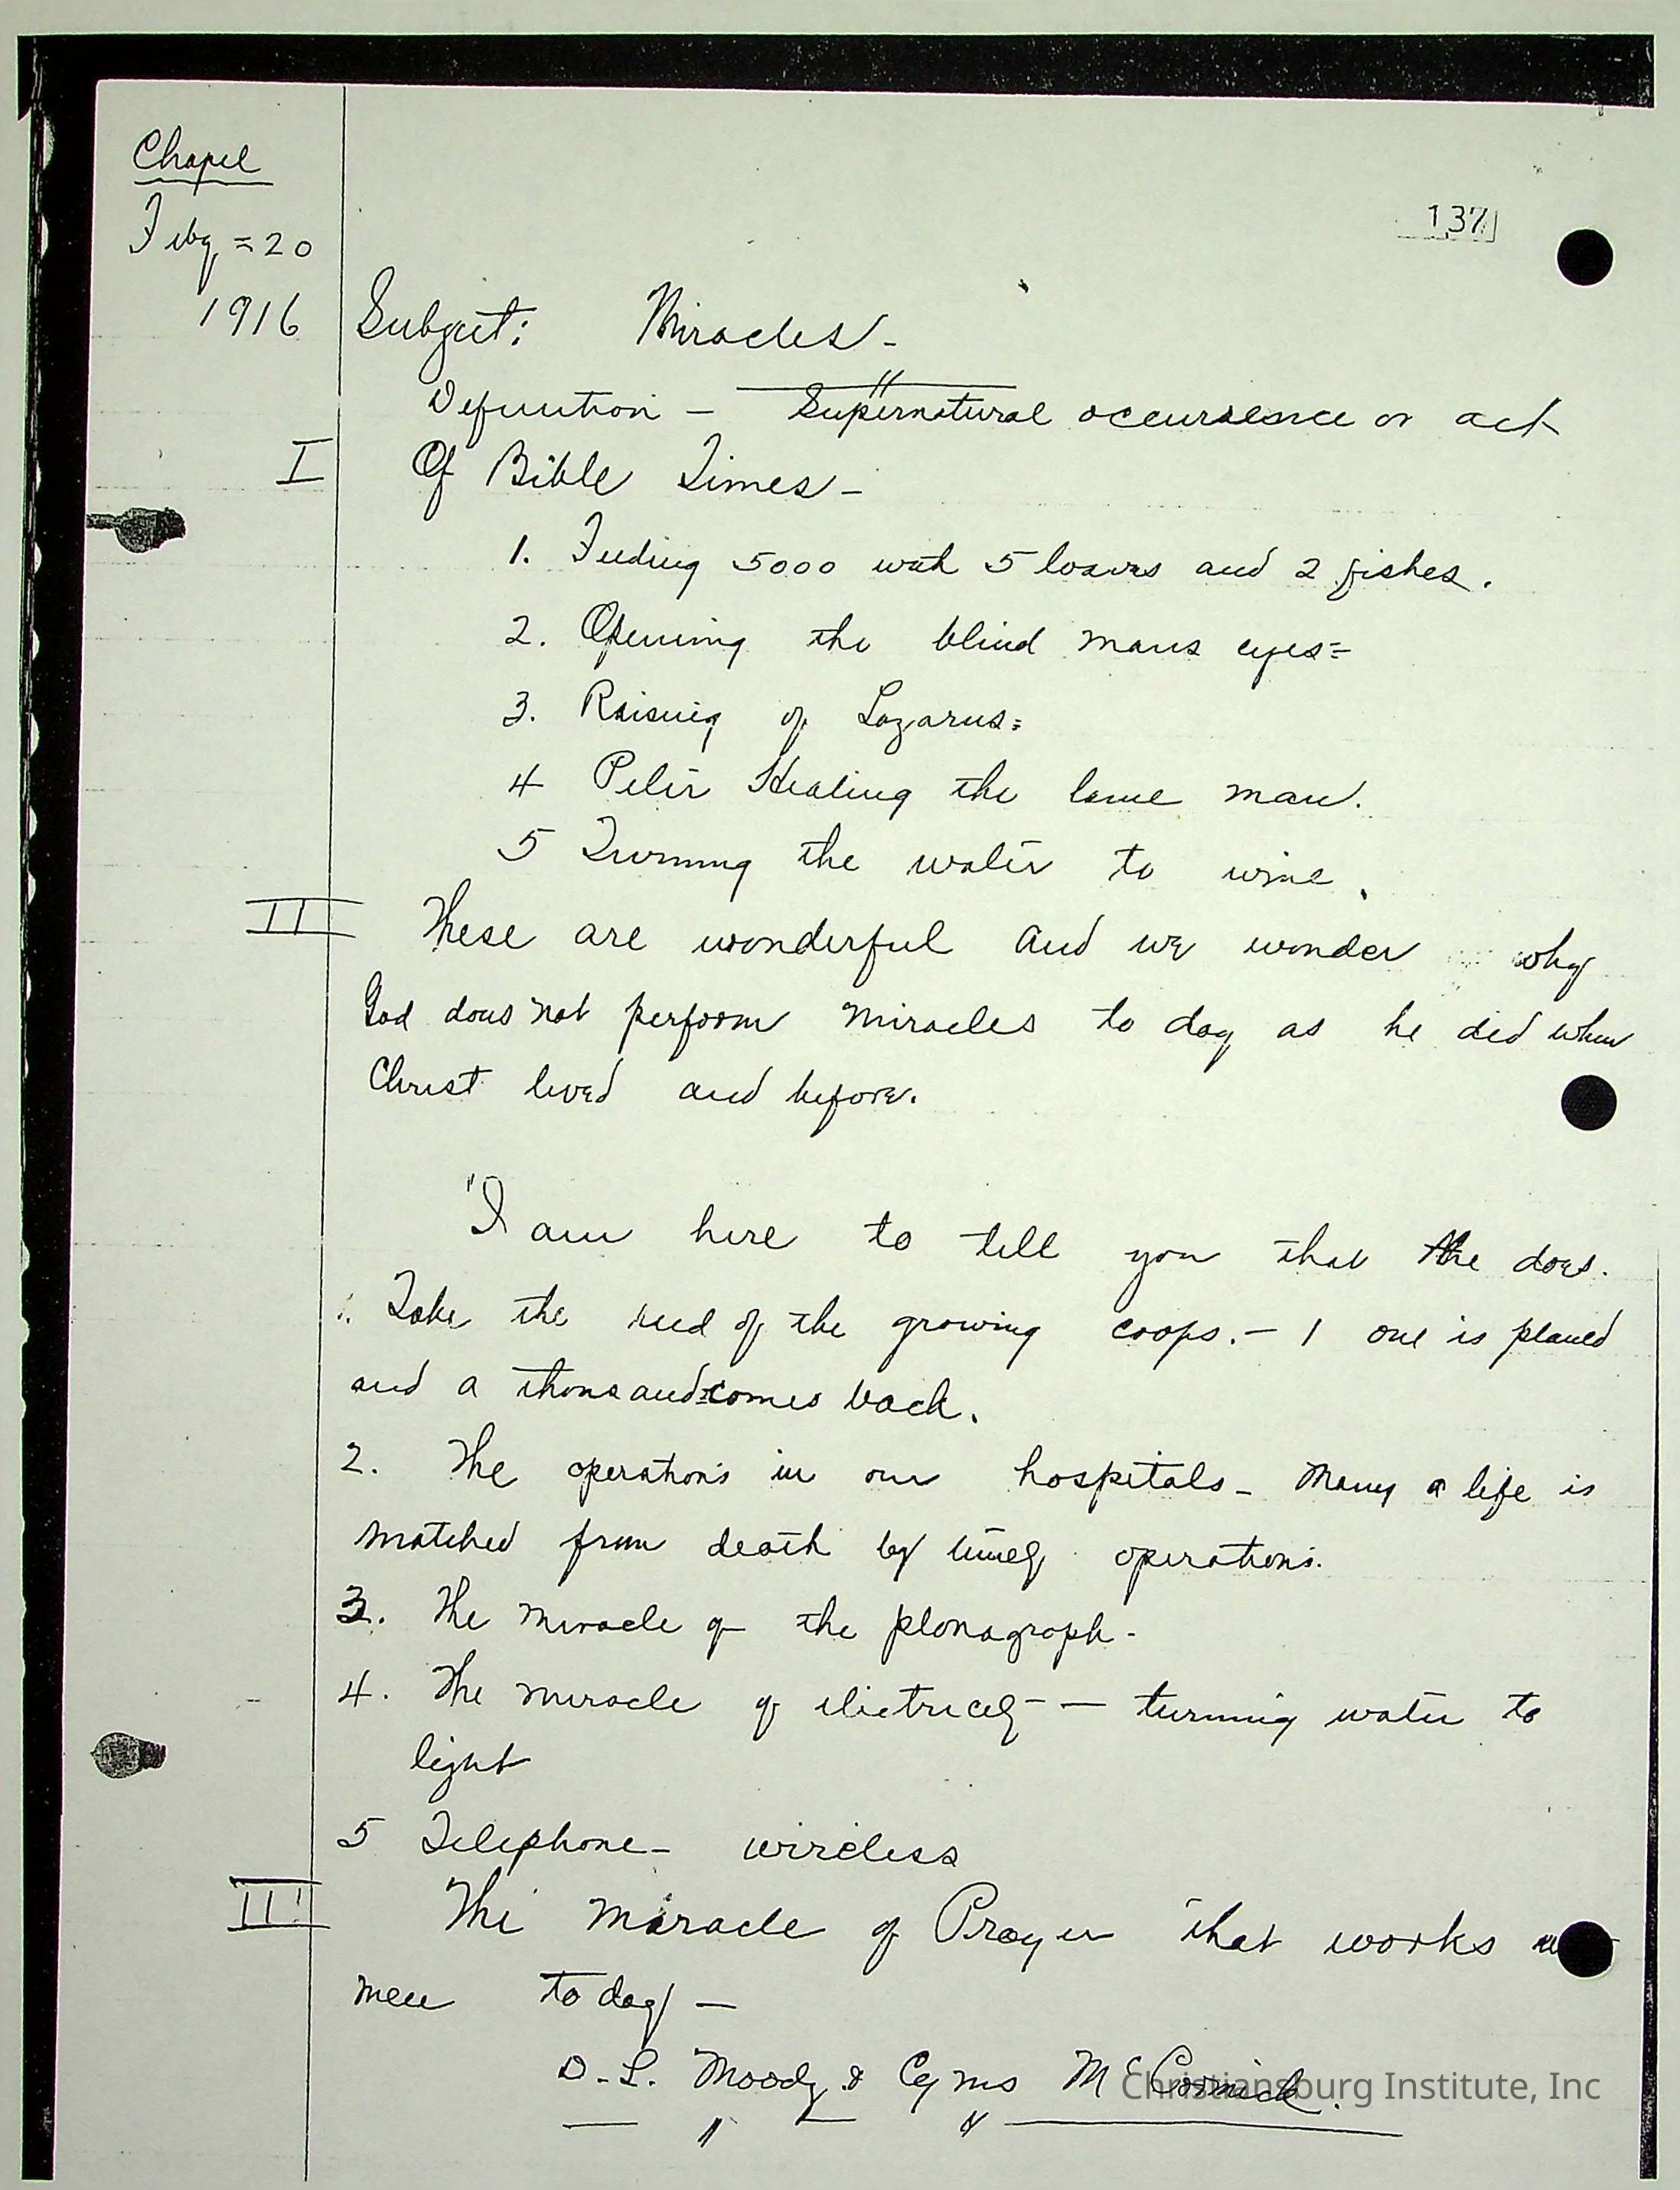 Chapel
137
Feby = 20
1916
Subject: Miracles -
Definition - Supernatural occurrence or act
I Of Bible Times -
1. Feeding 5000 with 5 loaves and 2 fishes.
2. Opening the blind mans eyes =
3. Raising of Lazarus =
4 Peter Healing the lame man.
5 Turning the water to wine.
II These are wonderful and we wonder why
God does not perform miracles to day as he did when
Christ lived and before.
"I am here to tell you that He does.
1. Take the seed of the growing crops. - 1 one is planed
and a thousand comes back.
2. The operations in our hospitals - Many a life is
snatched from death by timely operations.
3. The miracle of the plonagraph -
4. The miracle of electricity - — turning water to
light
5 Telephone - wireless
III The miracle of Prayer that works
men to day —
D. L. Moody & Cyrus McCormick.
Christiansburg Institute, Inc